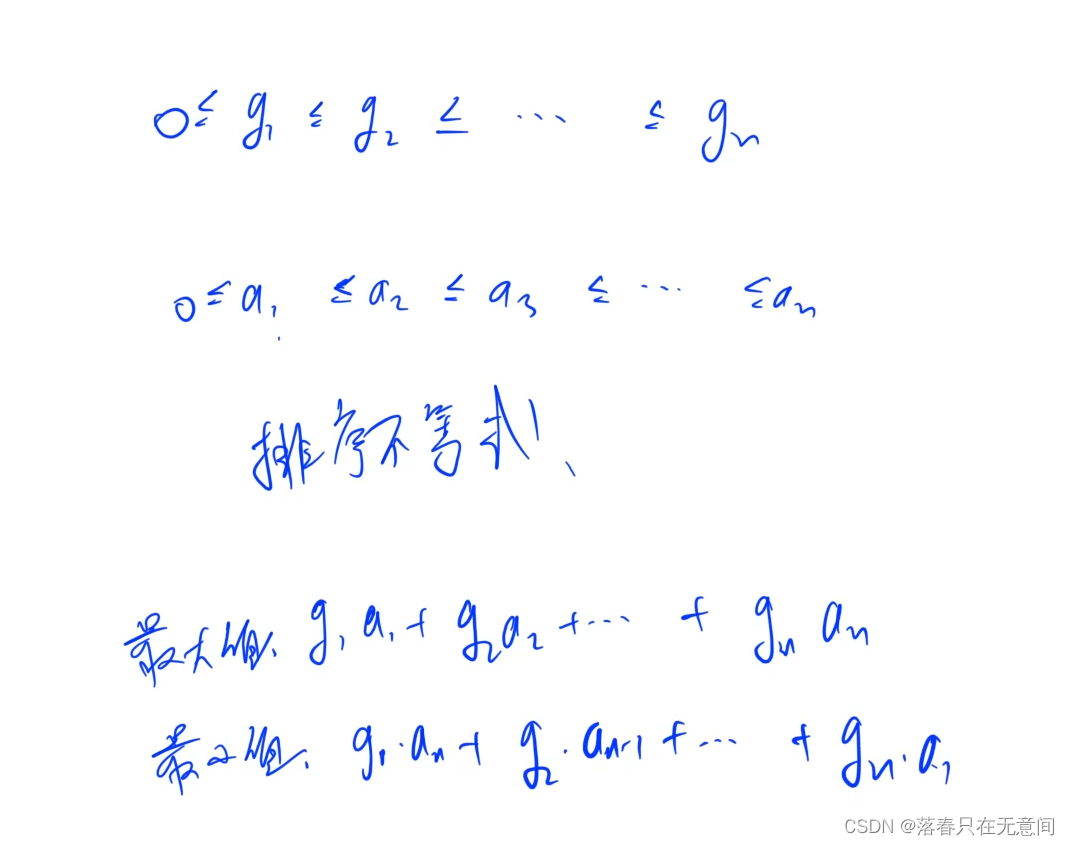 0 ≤ g₁ ≤ g₂ ≤ ⋯ ≤ gₙ
0 ≤ a₁ ≤ a₂ ≤ a₃ ≤ ⋯ ≤ aₙ
排序不等式
最大值: g₁a₁ + g₂a₂ + ⋯ + gₙaₙ
最小值: g₁·aₙ + g₂·aₙ₋₁ + ⋯ + gₙ·a₁
CSDN @落春只在无意间